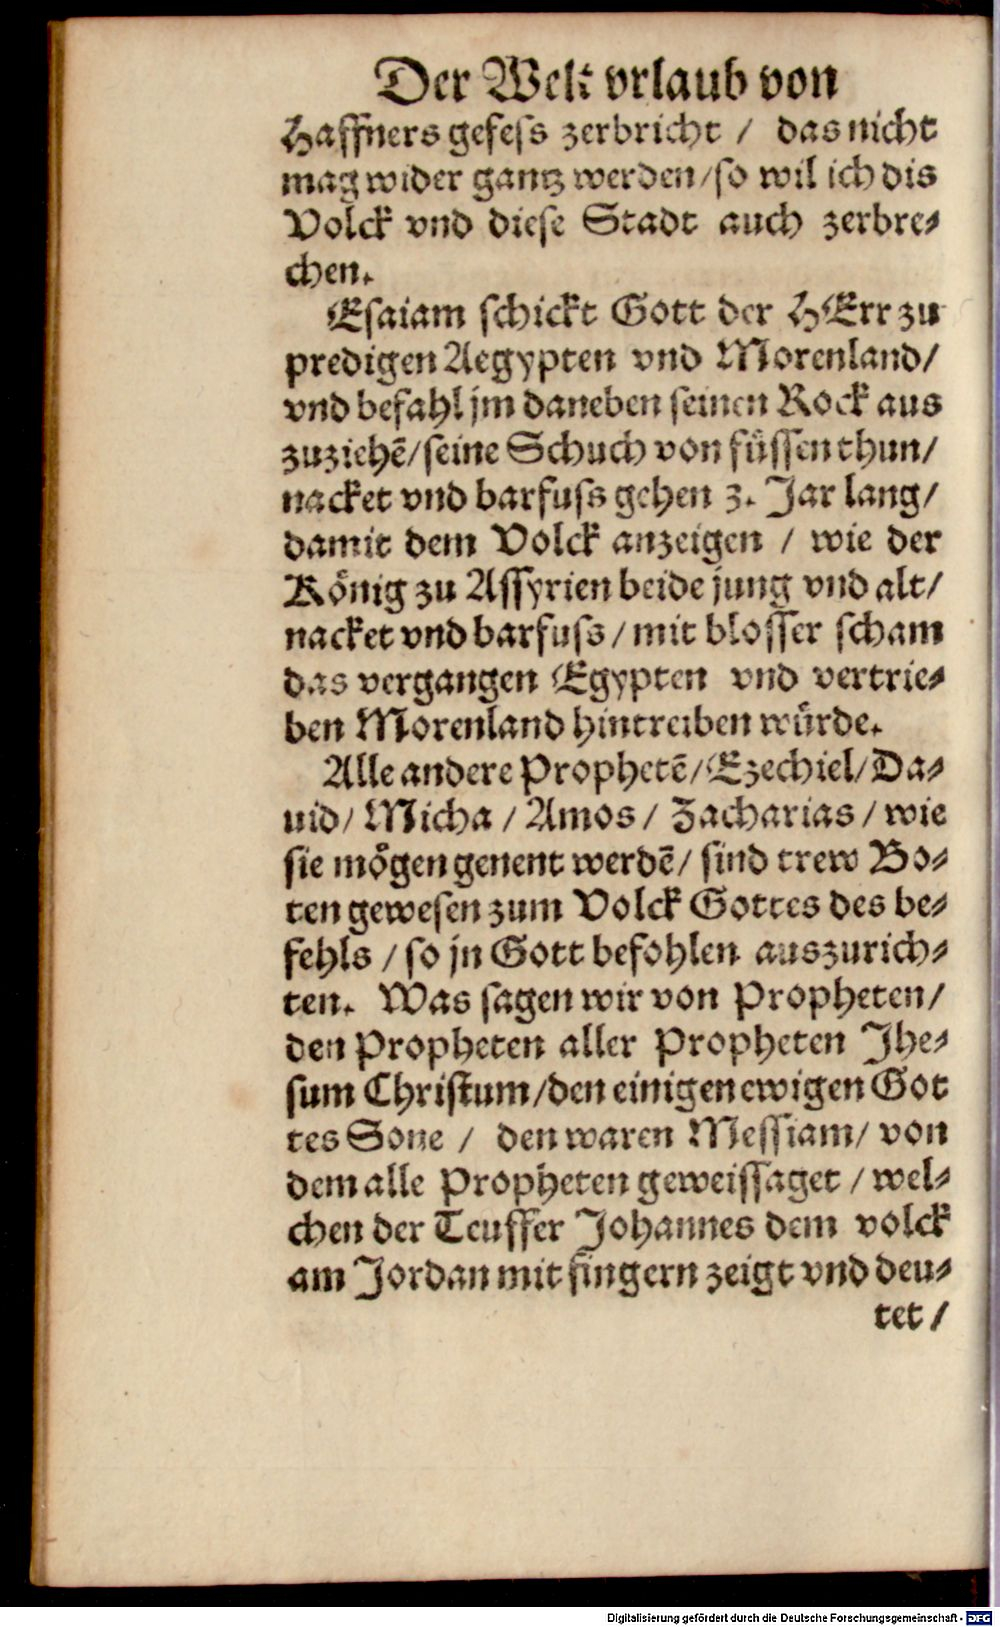 Der Welt vrlaub von
Haffners gefess zerbricht / das nicht
mag wider gantz werden/so wil ich dis
Volck vnd diese Stadt auch zerbre-
chen.
Esaiam schickt Gott der HErr zu
predigen Aegypten vnd Morenland/
vnd befahl jm daneben seinen Rock aus
zuziehē/seine Schuch von füssen thun/
nacket vnd barfuss gehen 3. Jar lang/
damit dem Volck anzeigen / wie der
König zu Assyrien beide jung vnd alt/
nacket vnd barfuss/mit blosser scham
das vergangen Egypten vnd vertrie-
ben Morenland hintreiben würde.
Alle andere Prophetē/Ezechiel/Da-
uid/ Micha / Amos/ Zacharias / wie
sie mögen genent werdē/ sind trew Bo-
ten gewesen zum Volck Gottes des be-
fehls /so jn Gott befohlen auszurich-
ten. Was sagen wir von Propheten/
den Propheten aller Propheten Jhe-
sum Christum/den einigen ewigen Got
tes Sone / den waren Messiam/ von
dem alle Propheten geweissaget / wel-
chen der Teuffer Johannes dem volck
am Jordan mit fingern zeigt vnd deu-
tet /
Digitalisierung gefördert durch die Deutsche Forschungsgemeinschaft - DFG